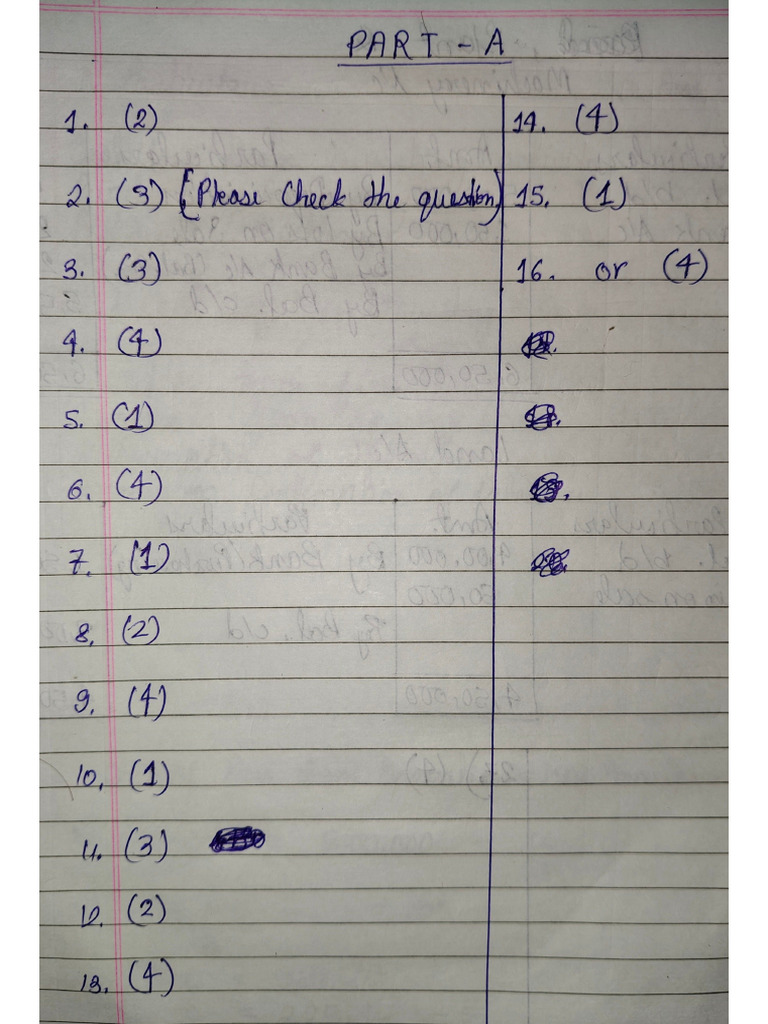 PART - A
1. (2)
2. (3) [Please Check the question)
3. (3)
4. (4)
5. (1)
6. (4)
7. (1)
8. (2)
9. (4)
10. (1)
11. (3)
12. (2)
13. (4)
14. (4)
15. (1)
16. or (4)